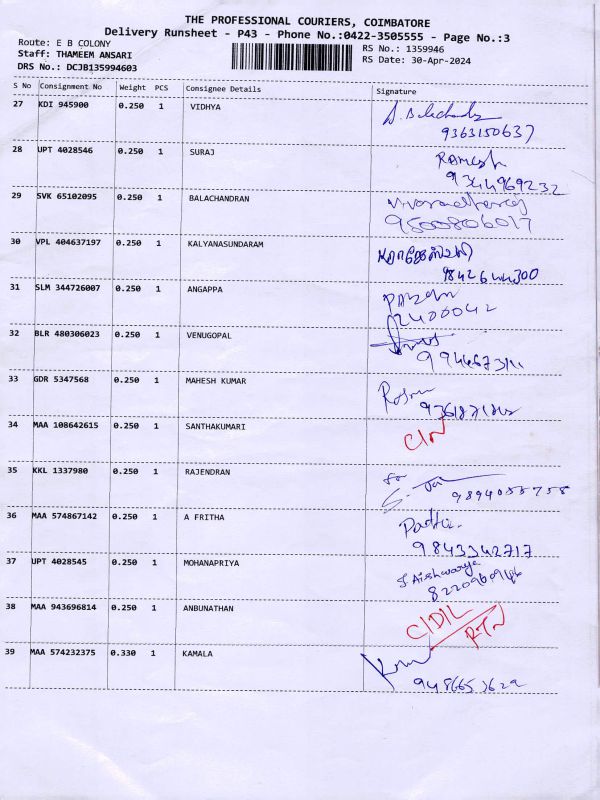 THE PROFESSIONAL COURIERS, COIMBATORE
Delivery Runsheet - P43 - Phone No.:0422-3505555 - Page No.:3
Route: E B COLONY
Staff: THAMEEM ANSARI
DRS No.: DCJB135994603
RS No.: 1359946
RS Date: 30-Apr-2024
S No Consignment No Weight PCS Consignee Details Signature
27 KDI 945900 0.250 1 VIDHYA
9363150637
28 UPT 4028546 0.250 1 SURAJ Ramesh
9344969232
29 SVK 65102095 0.250 1 BALACHANDRAN
9500806017
30 VPL 404637197 0.250 1 KALYANASUNDARAM
9842644300
31 SLM 344726007 0.250 1 ANGAPPA
2400042
32 BLR 480306023 0.250 1 VENUGOPAL
33 GDR 5347568 0.250 1 MAHESH KUMAR
34 MAA 108642615 0.250 1 SANTHAKUMARI
35 KKL 1337980 0.250 1 RAJENDRAN
9894055758
36 MAA 574867142 0.250 1 A FRITHA
9843342717
37 UPT 4028545 0.250 1 MOHANAPRIYA S Aishwarya
38 MAA 943696814 0.250 1 ANBUNATHAN
RTN
39 MAA 574232375 0.330 1 KAMALA